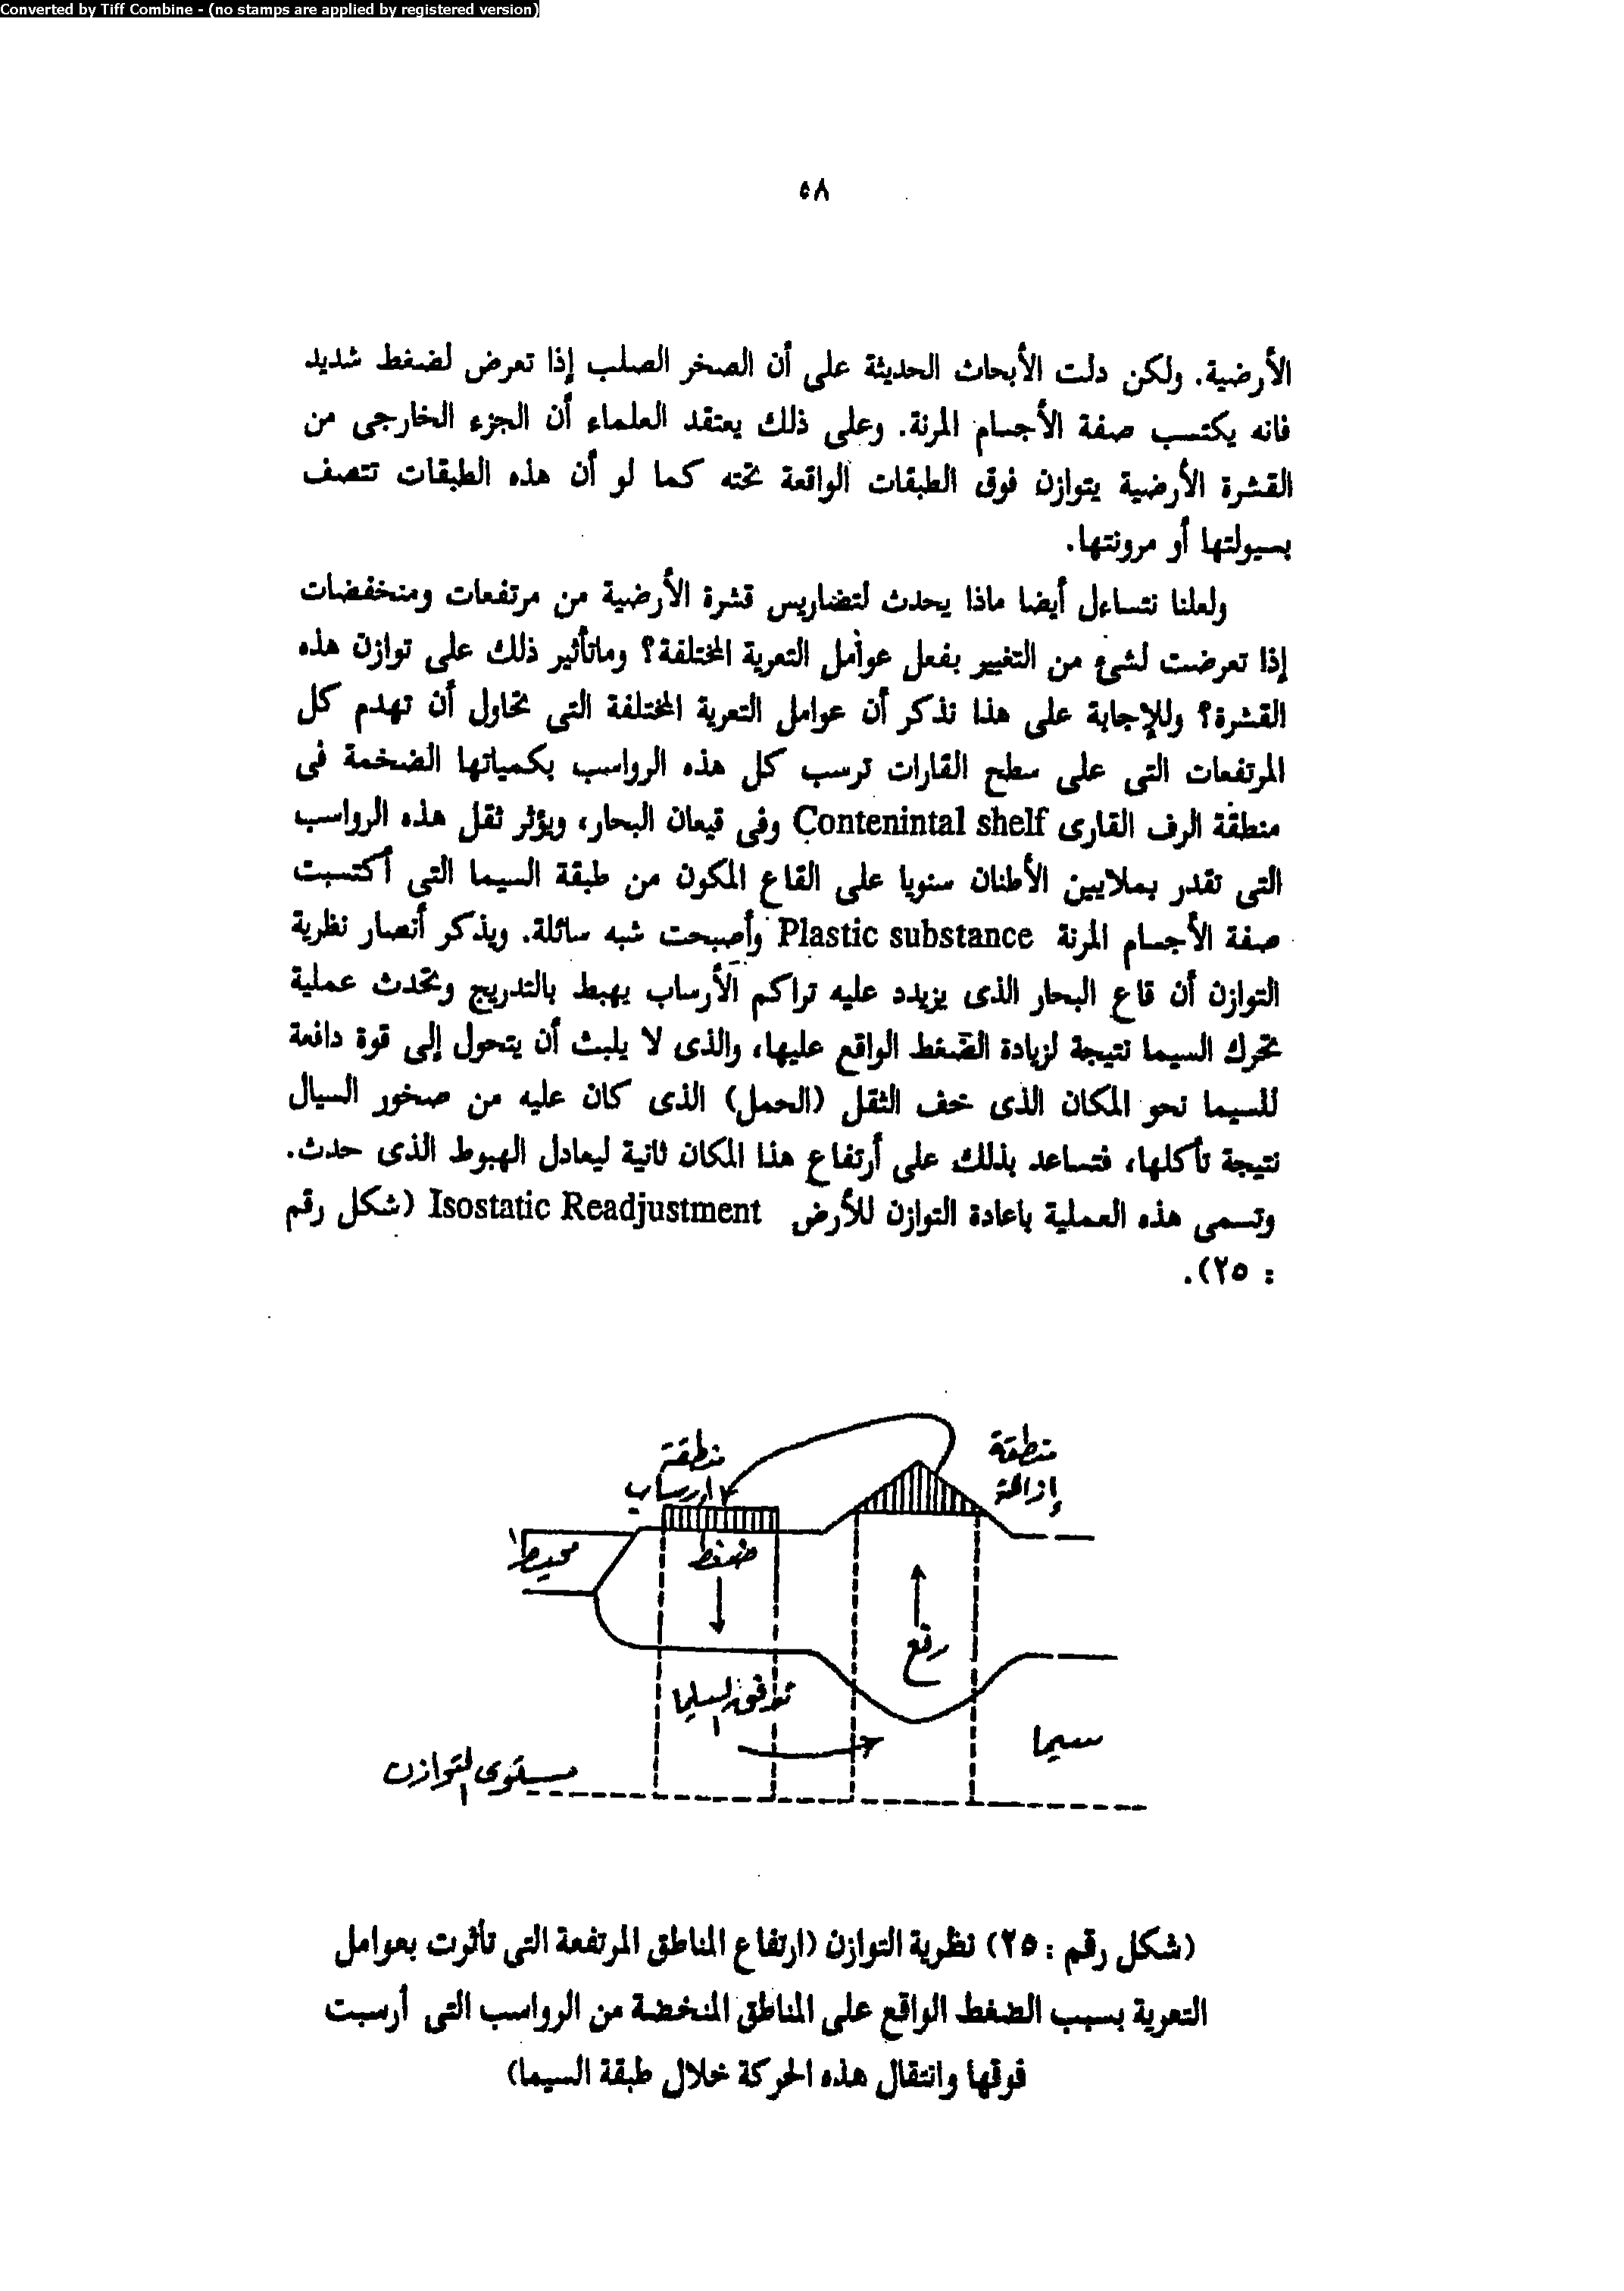 Converted by Tiff Combine - (no stamps are applied by registered version)
٥٨
الأرضية. ولكن دلت الأبحاث الحديثة على أن الصخر الصلب إذا تعرض لضغط شديد
فانه يكتسب صفة الأجسام المرنة. وعلى ذلك يعتقد العلماء أن الجزء الخارجى من
القشرة الأرضية يتوازن فوق الطبقات الواقعة تحته كما لو أن هذه الطبقات تتصف
بسيولتها أو مرونتها.
ولعلنا نتساءل أيضا ماذا يحدث لتضاريس قشرة الأرضية من مرتفعات ومنخفضات
إذا تعرضت لشئ من التغيير بفعل عوامل التعرية المختلفة؟ وماتأثير ذلك على توازن هذه
القشرة؟ وللإجابة على هذا نذكر أن عوامل التعرية المختلفة التى تحاول أن تهدم كل
المرتفعات التى على سطح القارات ترسب كل هذه الرواسب بكمياتها الضخمة فى
منطقة الرف القارى Contenintal shelf وفى قيعان البحار، ويؤثر ثقل هذه الرواسب
التى تقدر بملايين الأطنان سنويا على القاع المكون من طبقة السيما التى أكتسبت
صفة الأجسام المرنة Plastic substance وأصبحت شبه سائلة. ويذكر أنصار نظرية
التوازن أن قاع البحار الذى يزيدد عليه تراكم الأرساب يهبط بالتدريج وتحدث عملية
تحرك السيما نتيجة لزيادة الضغط الواقع عليها، والذى لا يلبث أن يتحول إلى قوة دافعة
للسيما نحو المكان الذى خف الثقل (الحمل) الذى كان عليه من صخور السيال
نتيجة تأكلها، فتساعد بذلك على أرتفاع هذا المكان ثانية ليعادل الهبوط الذى حدث.
وتسمى هذه العملية باعادة التوازن للأرض Isostatic Readjustment (شكل رقم
: ٢٥).
منطقة
إزالة
منطقة
ارساب
محيط
ضغط
رفع
تدفق السيما
سيما
مستوى التوازن
(شكل رقم : ٢٥) نظرية التوازن (ارتفاع المناطق المرتفعة التى تأثرت بعوامل
التعرية بسبب الضغط الواقع على المناطق المنخضة من الرواسب التى أرسبت
فوقها وانتقال هذه الحركة خلال طبقة السيما)